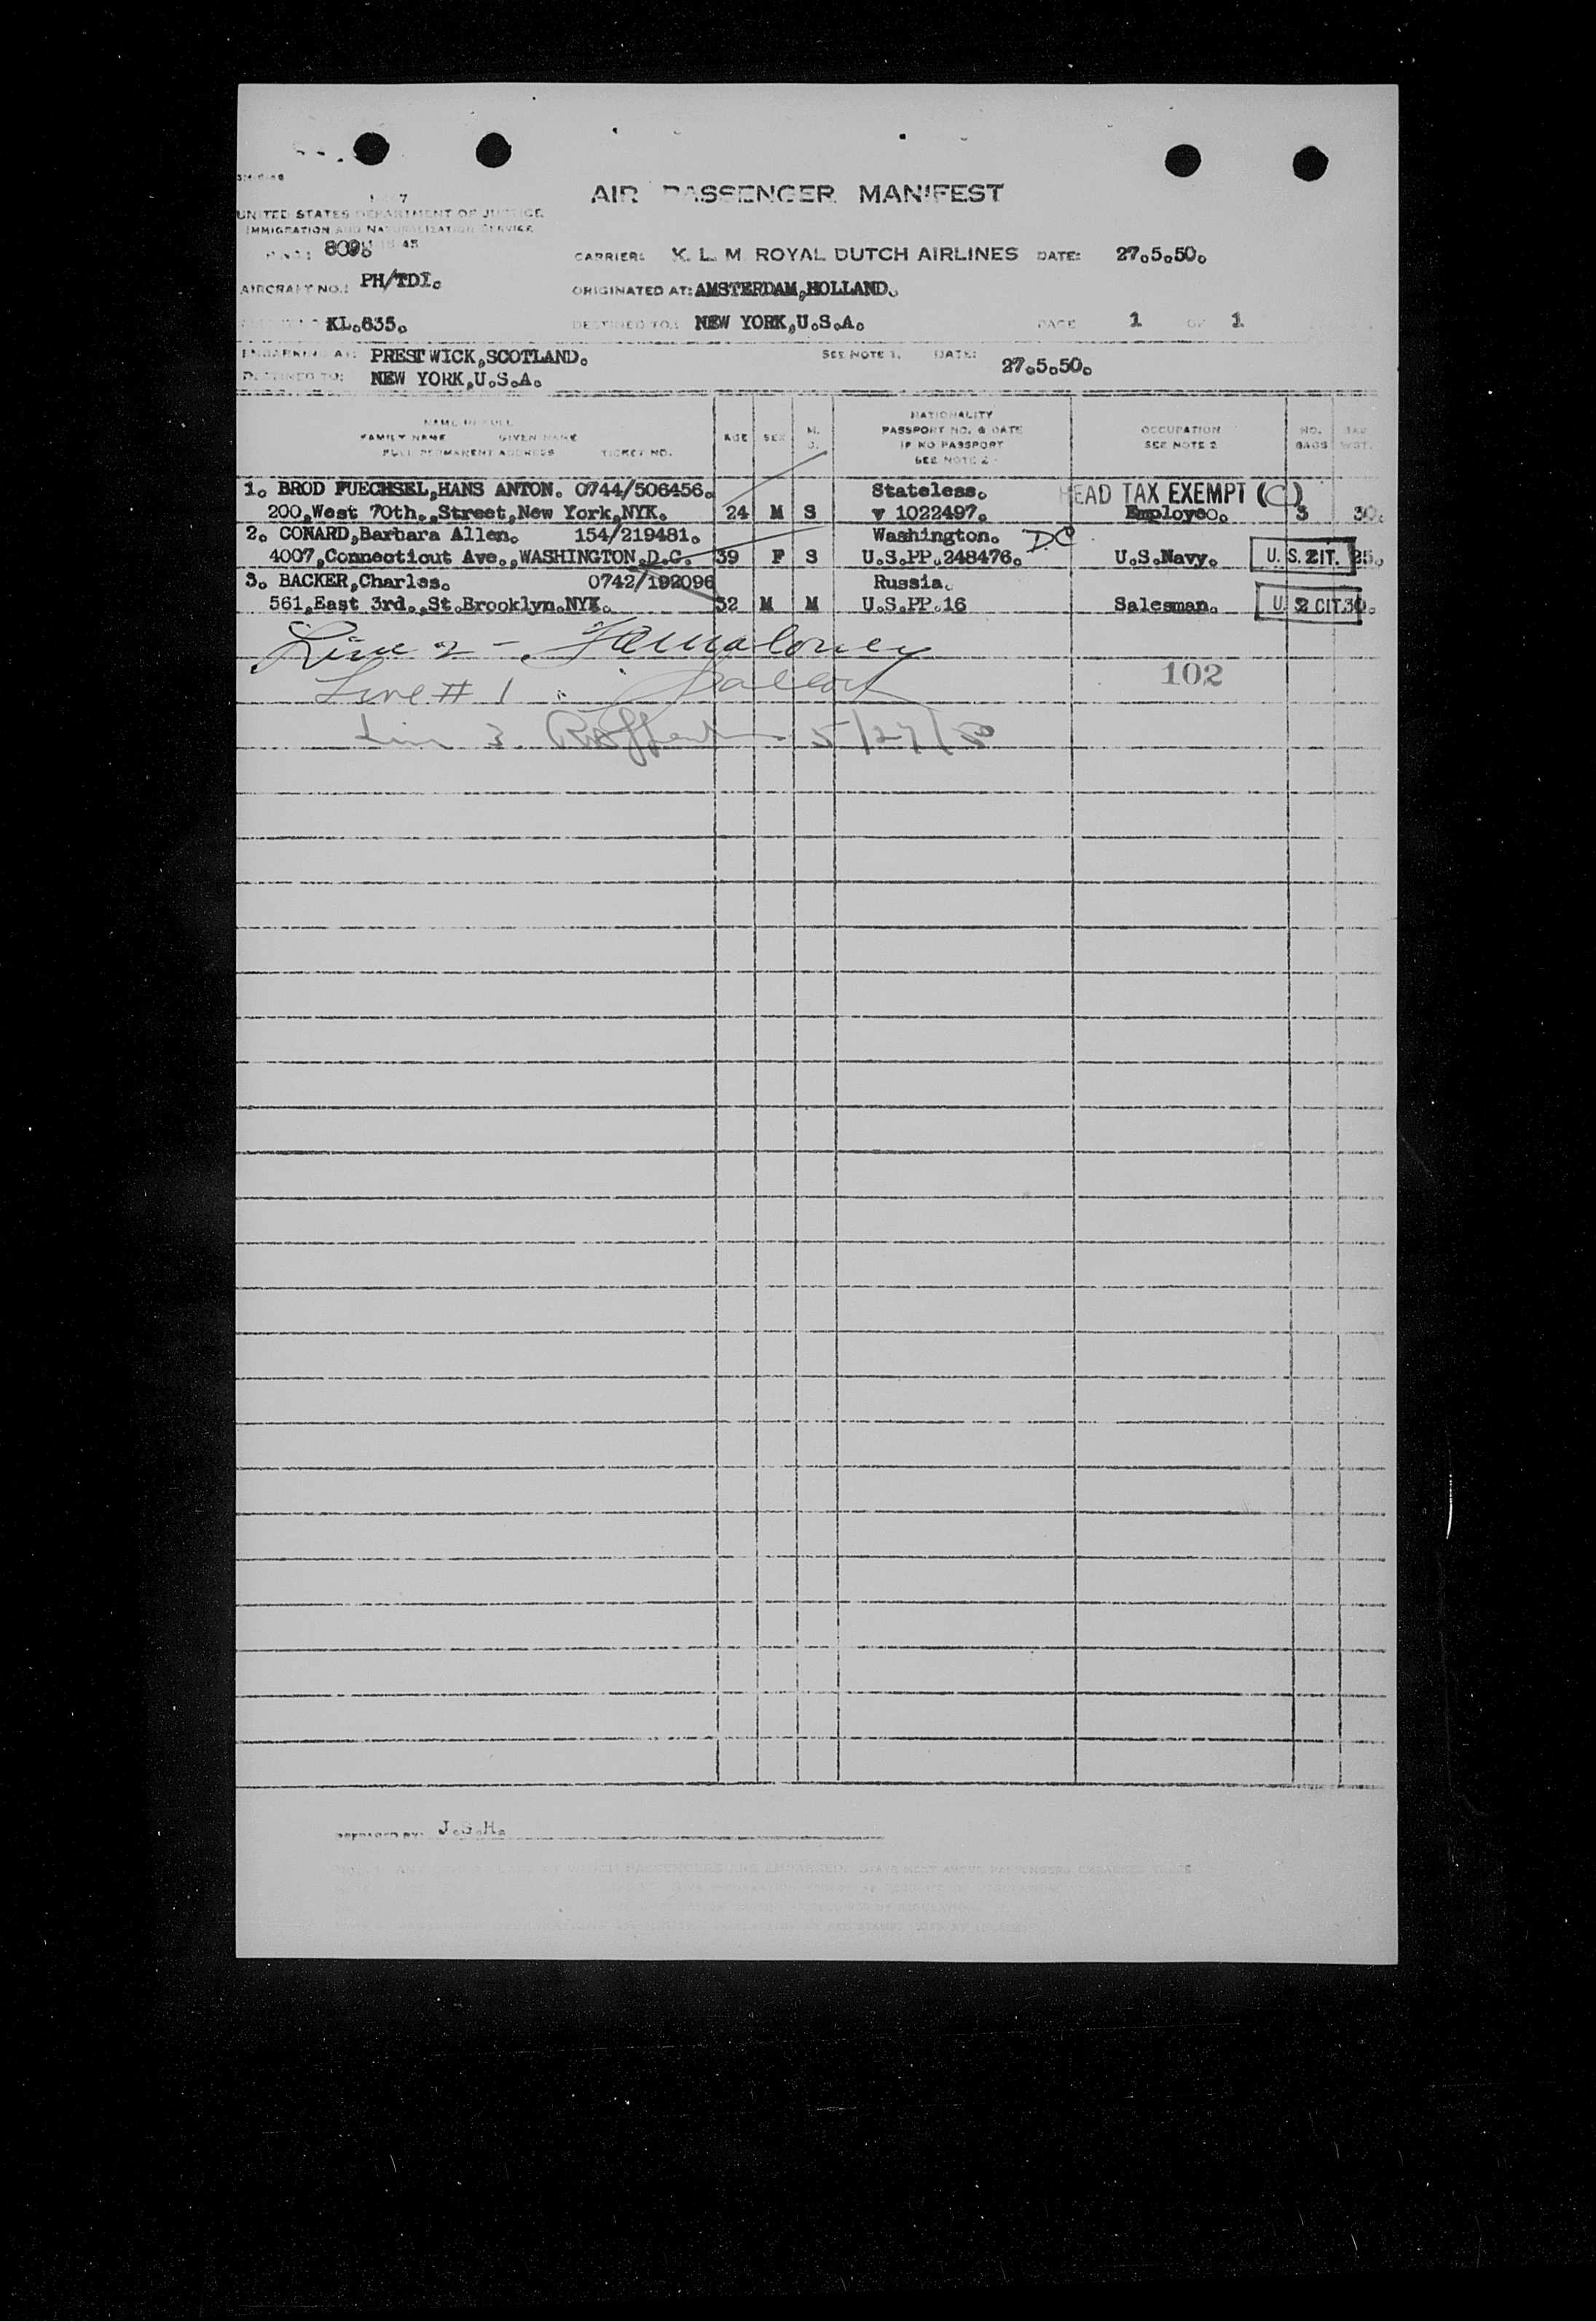 AIR PASSENGER MANIFEST
UNITED STATES DEPARTMENT OF JUSTICE
IMMIGRATION AND NATURALIZATION SERVICE
CARRIER: K. L. M. ROYAL DUTCH AIRLINES DATE: 27.5.50.
AIRCRAFT NO.: PH/TDI.
ORIGINATED AT: AMSTERDAM,HOLLAND.
KL.635.
DESTINED TO.: NEW YORK,U.S.A. PAGE 1 OF 1
EMBARKING AT: PRESTWICK,SCOTLAND. SEE NOTE 1. DATE: 27.5.50.
DESTINED TO: NEW YORK,U.S.A.
NAME IN FULL
FAMILY NAME GIVEN NAME
FULL PERMANENT ADDRESS TICKET NO.
AGE SEX
NATIONALITY
PASSPORT NO. & DATE
IF NO PASSPORT
SEE NOTE 2
OCCUPATION
SEE NOTE 2
NO.
BAGS
1. BROD FUECHSEL,HANS ANTON. 0744/506456. Stateless. HEAD TAX EXEMPT (C)
200,West 70th.,Street,New York,NYK. 24 M S 1022497. Employee. 3 30.
2. CONARD,Barbara Allen. 154/219481. Washington. DC
4007,Connecticut Ave.,WASHINGTON,D.C. 39 F S U.S.PP.248476. U.S.Navy. U. S. CIT. 2 25.
3. BACKER,Charles. 0742/192096 Russia.
561,East 3rd.,St.Brooklyn.NYK. 32 M M U.S.PP.16 Salesman. U. S. CIT. 2 30.
Line 2 -
102
Line # 1
Line 3 5/27/50
PREPARED BY: J.G.H.